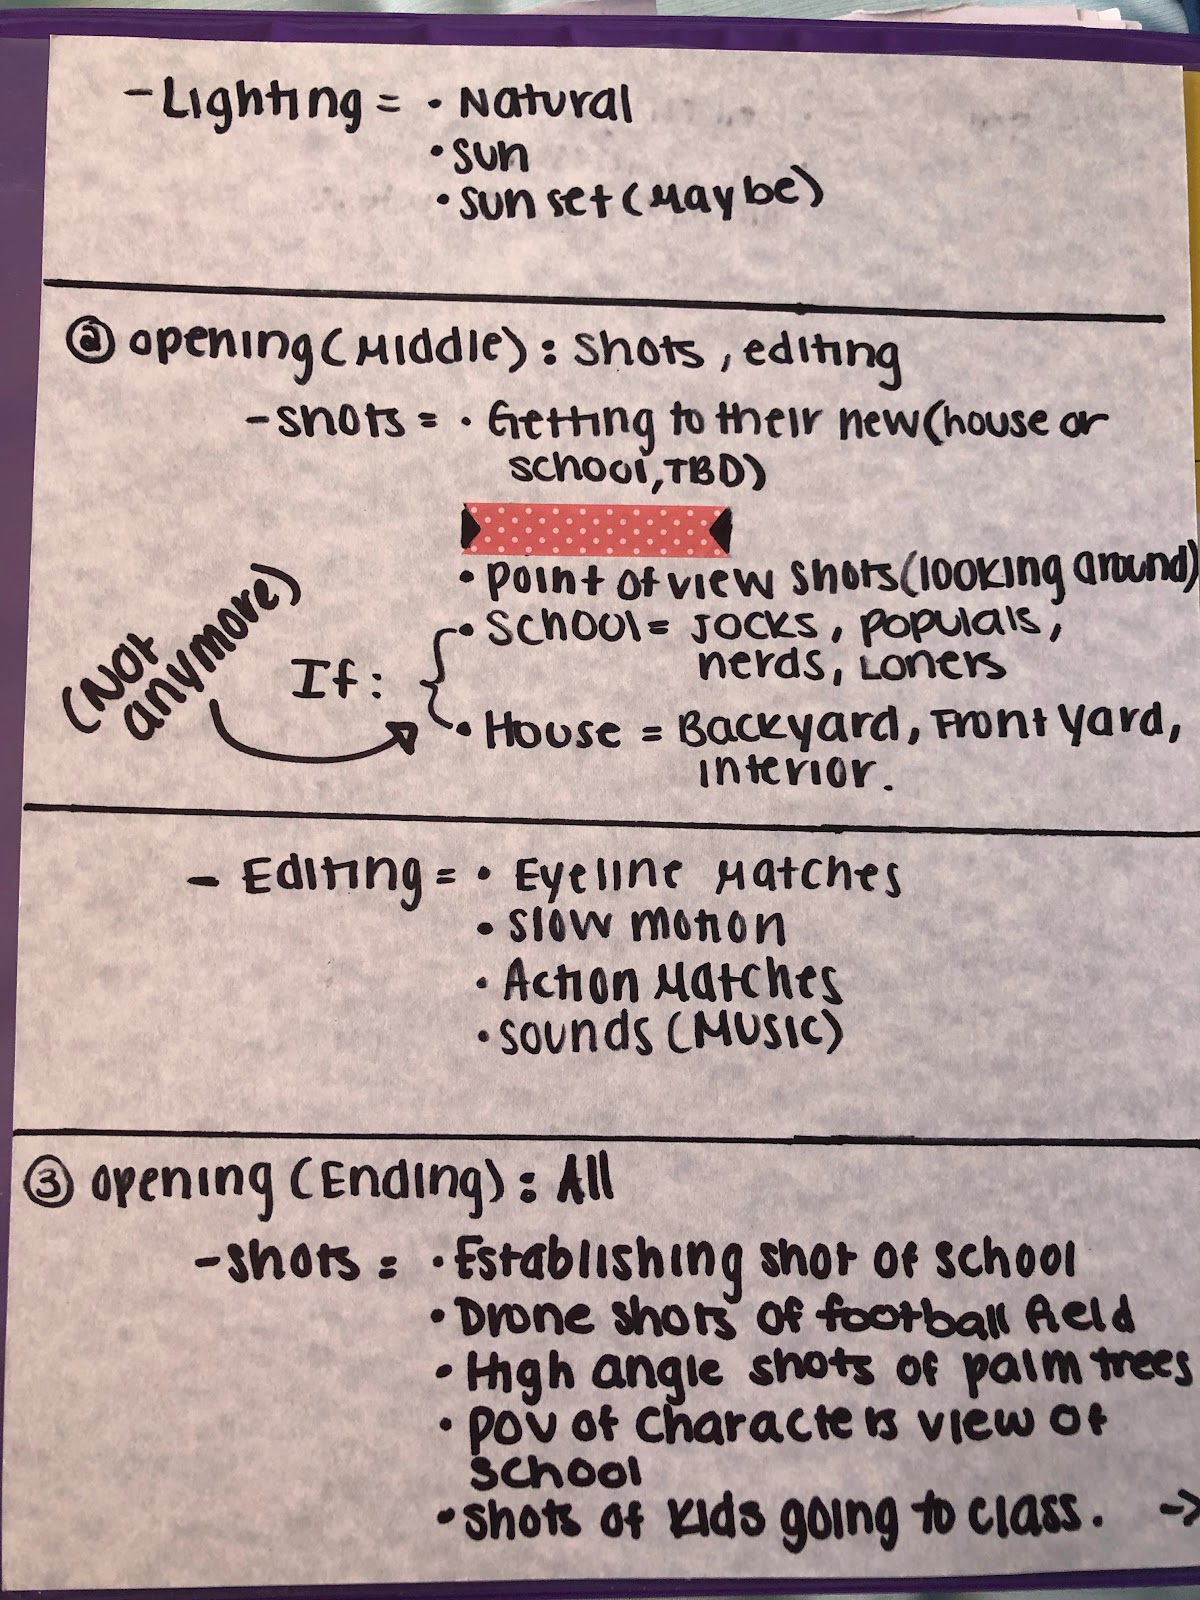 - Lighting = • Natural
• Sun
• Sun set (Maybe)
② opening (Middle) : Shots, editing
- Shots = • Getting to their new (house or
school, TBD)
• Point of view shots (looking around)
(Not
anymore)
If :
• School = Jocks, populars,
nerds, Loners
• House = Backyard, Front yard,
interior.
- Editing = • Eyeline Matches
• Slow motion
• Action Matches
• Sounds (Music)
③ opening (Ending) : All
- Shots = • Establishing shot of school
• Drone shots of football field
• High angle shots of palm trees
• POV of characters view of
school
• Shots of kids going to class. →